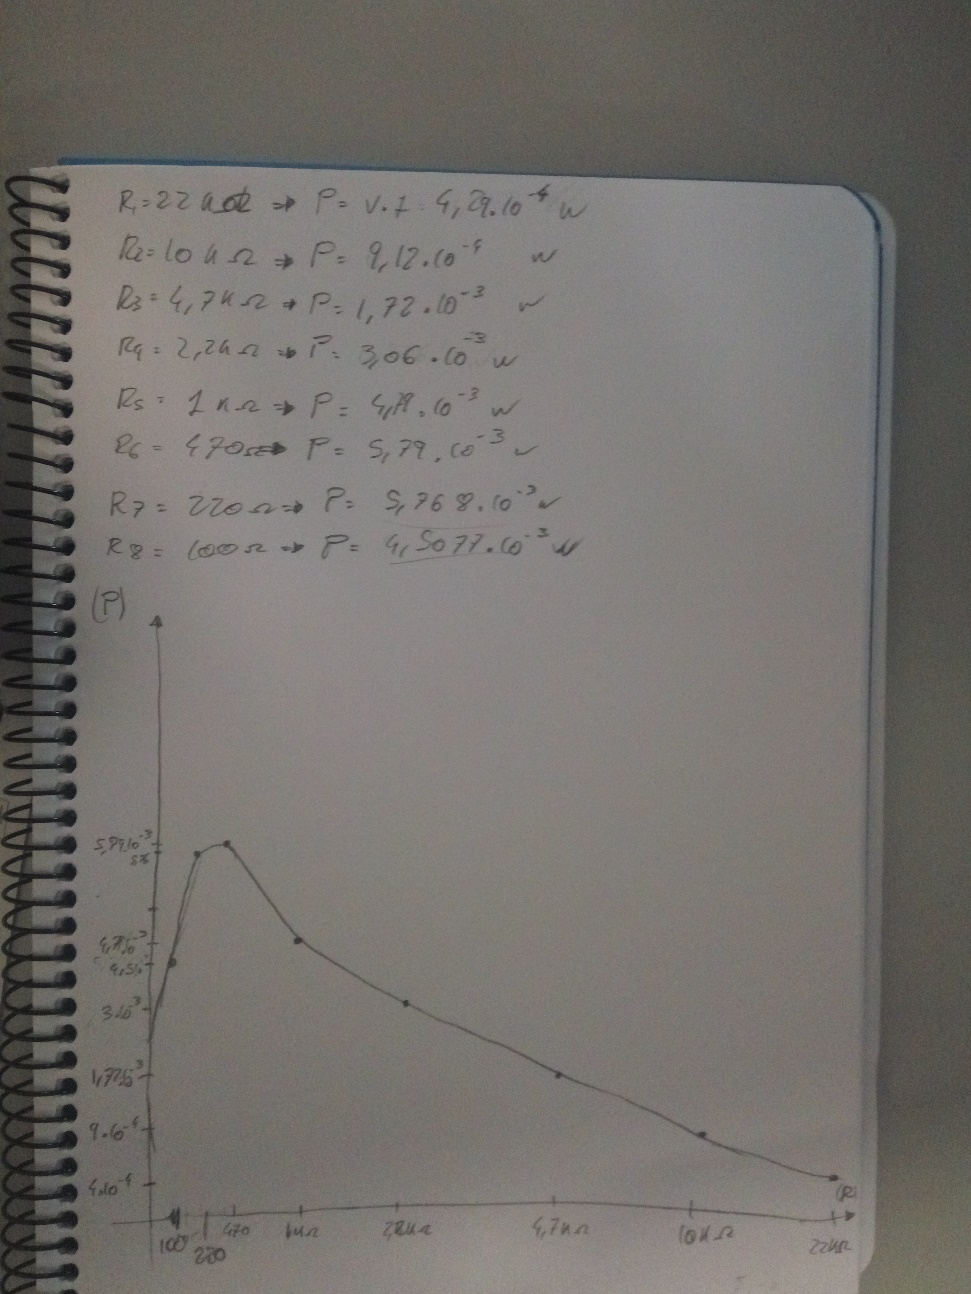 R1=22kΩ ⇒ P= V.I = 4,29.10^-4 W
R2=10kΩ ⇒ P= 9,12.10^-4 W
R3=4,7kΩ → P= 1,72.10^-3 W
R4=2,2kΩ ⇒ P= 3,06.10^-3 W
R5= 1kΩ ⇒ P= .10^-3 W
R6= 470Ω ⇒ P= 5,79.10^-3 W
R7= 220Ω ⇒ P= 5,768.10^-3 W
R8= 100Ω ⇒ P= 4,5077.10^-3 W
(P)
3.10^-3
1,72.10^-3
9.10^-4
4.10^-4
(R)
100 220 470 1kΩ 4,7kΩ 10kΩ 22kΩ